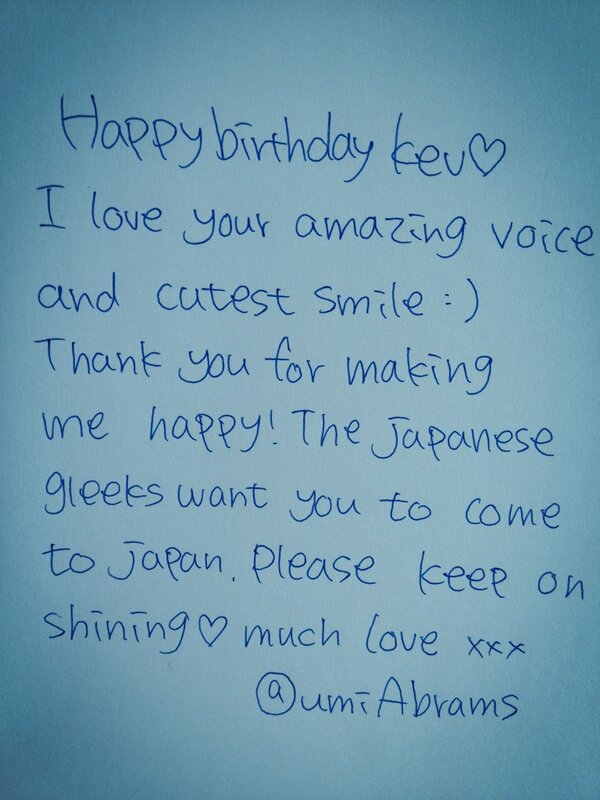 Happy birthday kev♡
I love your amazing voice
and cutest smile :)
Thank you for making
me happy! The Japanese
gleeks want you to come
to Japan. Please keep on
shining♡ much love xxx
@umiAbrams